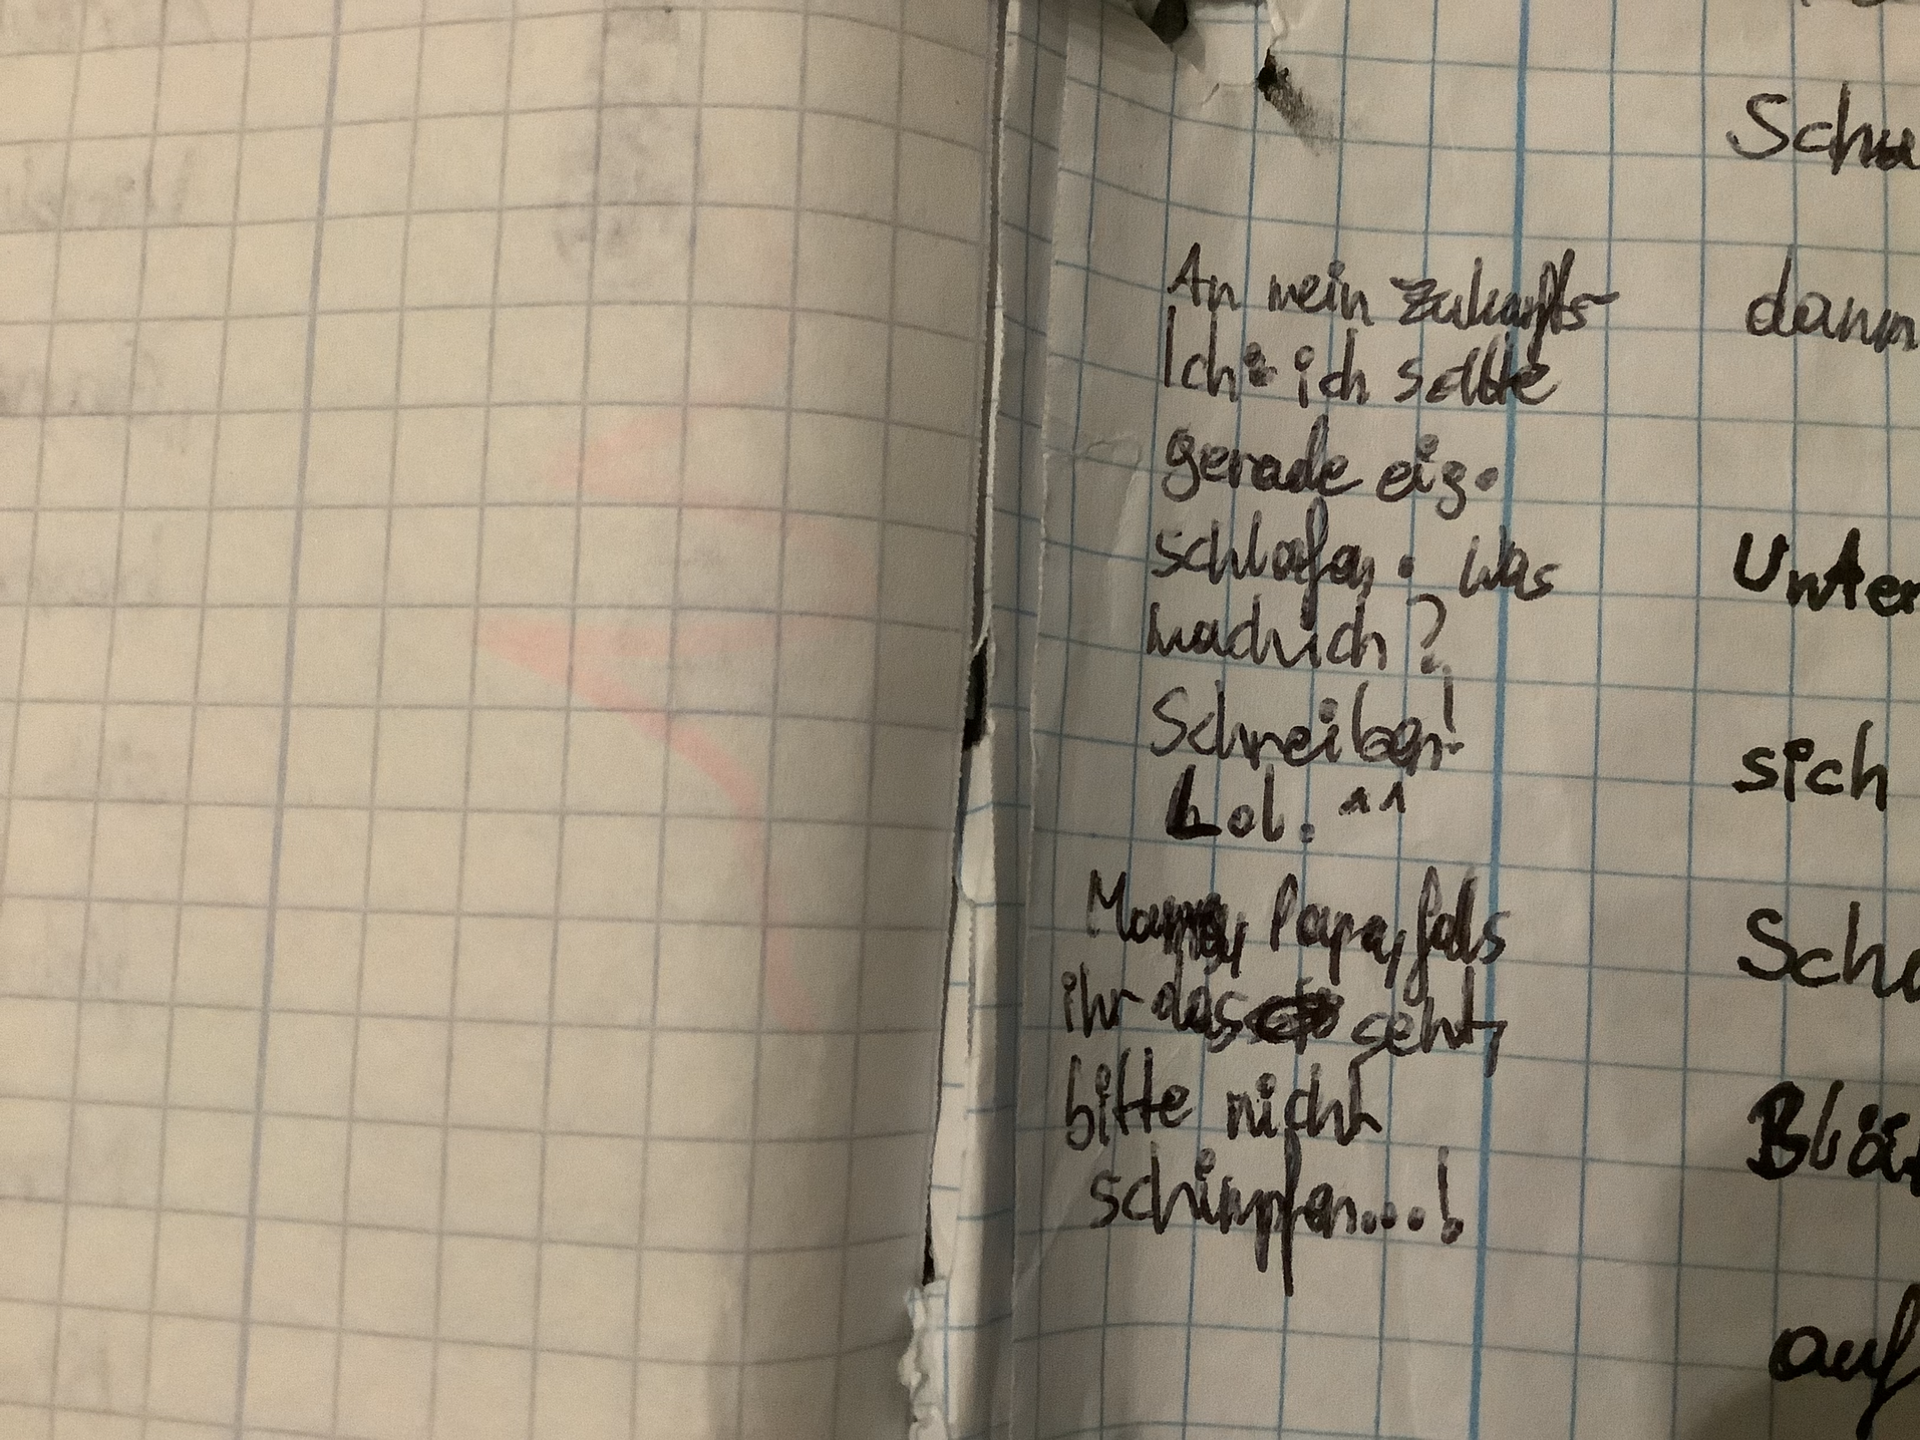 An mein Zukunfts-
Ich: ich sollte
gerade eig.
schlafen. Was
mach ich?
Schreiben!
Lol. ^^
Mama, Papa, falls
ihr das seht,
bitte nicht
schimpfen...!
dann
Unter
sich
auf